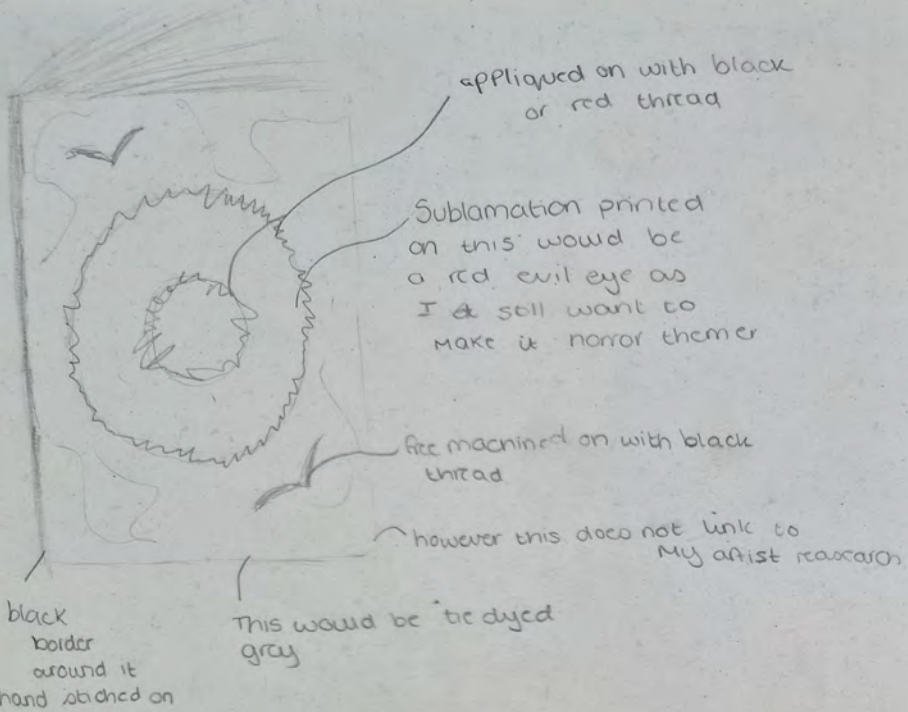 appliqued on with black
or red thread
Sublamation printed
on this would be
a red evil eye as
I still want to
make it horror themer
free machined on with black
thread
however this does not link to
My artist reasearch
black
border
around it
hand stiched on
This would be tie dyed
grey